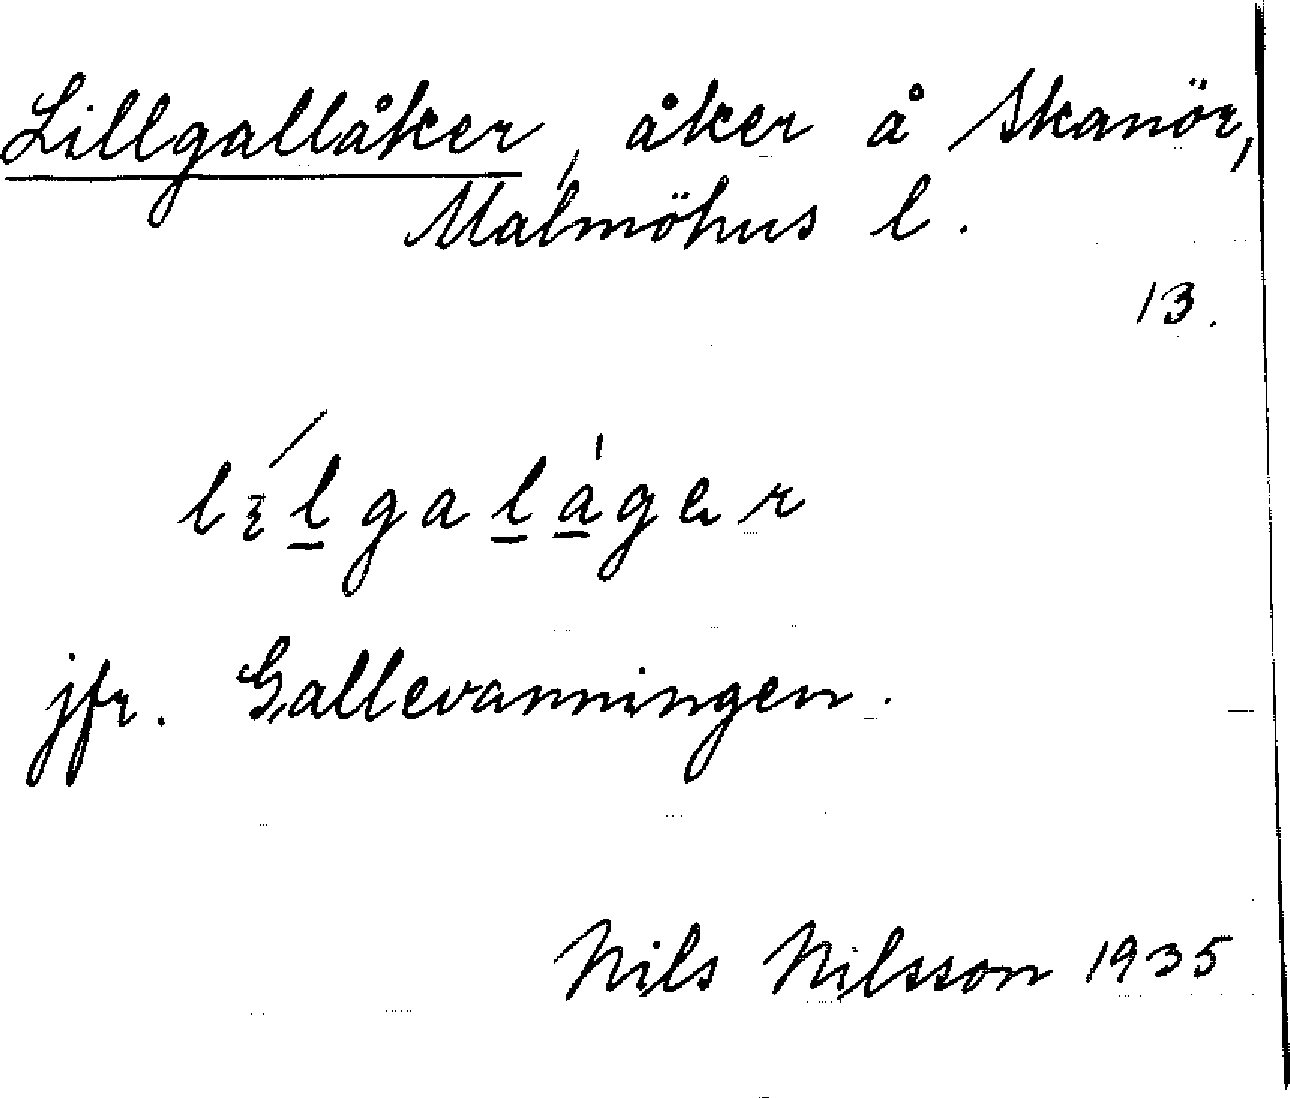 Lillgallåker, åker å Skanör,
Malmöhus l.
13.
jfr. Gallevanningen.
Nils Nilsson 1935